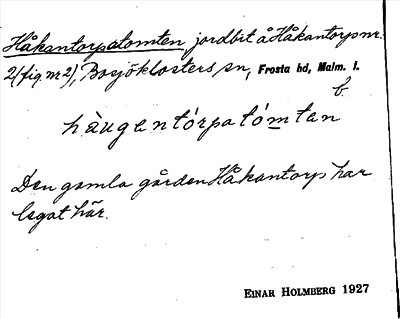 Håkantorpatomten jordbit å Håkantorp nr.
2 (fig nr 2), Bosjöklosters sn, Frosta hd, Malm. l.
b
hàugentórpatómtan
Den gamla gården Håkantorp har
legat här.
EINAR HOLMBERG 1927